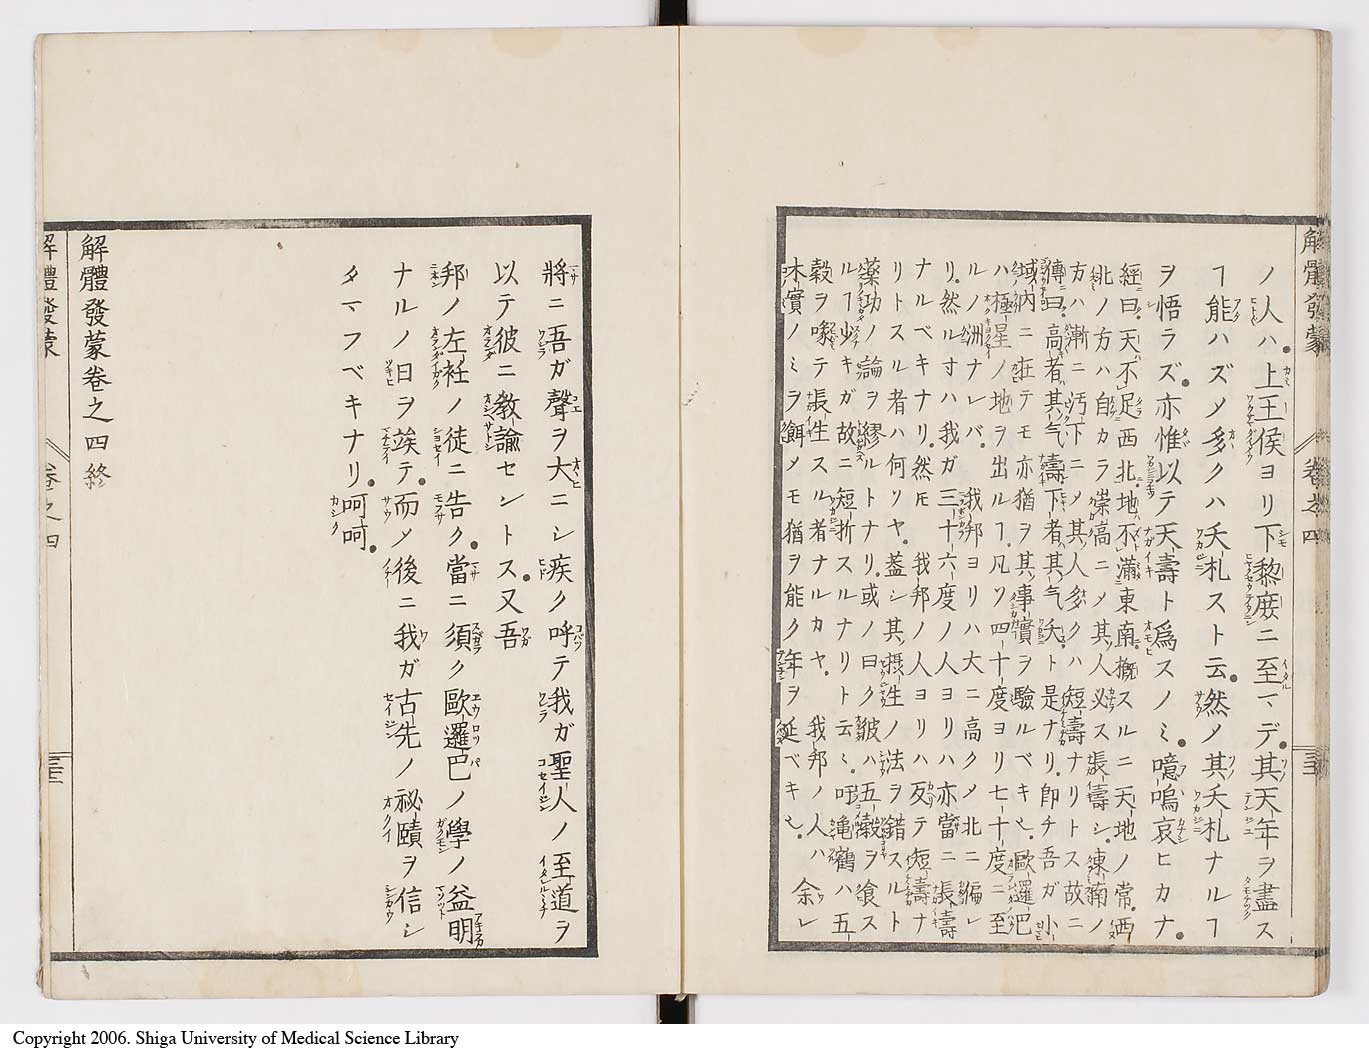 解體發蒙
卷之四
三十三
ノ人ハ上王侯ヨリ下黎庶ニ至マデ其天年ヲ盡ス
ヿ能ハズメ多クハ夭札スト云然メ其夭札ナルヿ
ヲ悟ラズ亦惟以テ天壽ト爲スノミ噫嗚哀ヒカナ
經曰天不足西北地不滿東南概スルニ天地ノ常西
北ノ方ハ自カラ崇高ニメ其人必ス長壽シ東南ノ
方ハ漸ニ汚下ニメ其人多クハ短壽ナリトス故ニ
傳曰高者其气壽下者其气夭ト是ナリ即チ吾ガ小
域内ニ在テモ亦猶ヲ其事實ヲ驗ルベキ也歐邏巴
ハ極星ノ地ヲ出ルヿ凡ソ四十度ヨリ七十度ニ至
ルノ洲ナレバ我邦ヨリハ大ニ高クメ北ニ偏レ
リ然ル寸ハ我ガ三十六度ノ人ヨリハ亦當ニ長壽
ナルベキナリ然𪜈我邦ノ人ヨリハ反テ短壽ナ
リトスル者ハ何ソヤ蓋シ其摂生ノ法ヲ錯スルト
藥功ノ論ヲ繆ルトナリ或ノ曰ク彼ハ五穀ヲ食ス
ルヿ少キガ故ニ短折スルナリト云ヘ吁亀鶴ハ五
穀ヲ喙テ長生スル者ナルカヤ我邦ノ人ハ余レ
木實ノミヲ餌メモ猶ヲ能ク年ヲ延ベキ也
將ニ吾ガ聲ヲ大ニシ疾ク呼テ我ガ聖人ノ至道ヲ
以テ彼ニ教諭セントス又吾
邦ノ左衽ノ徒ニ告ク當ニ須ク歐邏巴ノ學ノ益明
ナルノ日ヲ竢テ而メ後ニ我ガ古先ノ祕賾ヲ信シ
タマフベキナリ呵呵
解體發蒙卷之四終
解體發蒙
卷之四
三十三
Copyright 2006. Shiga University of Medical Science Library